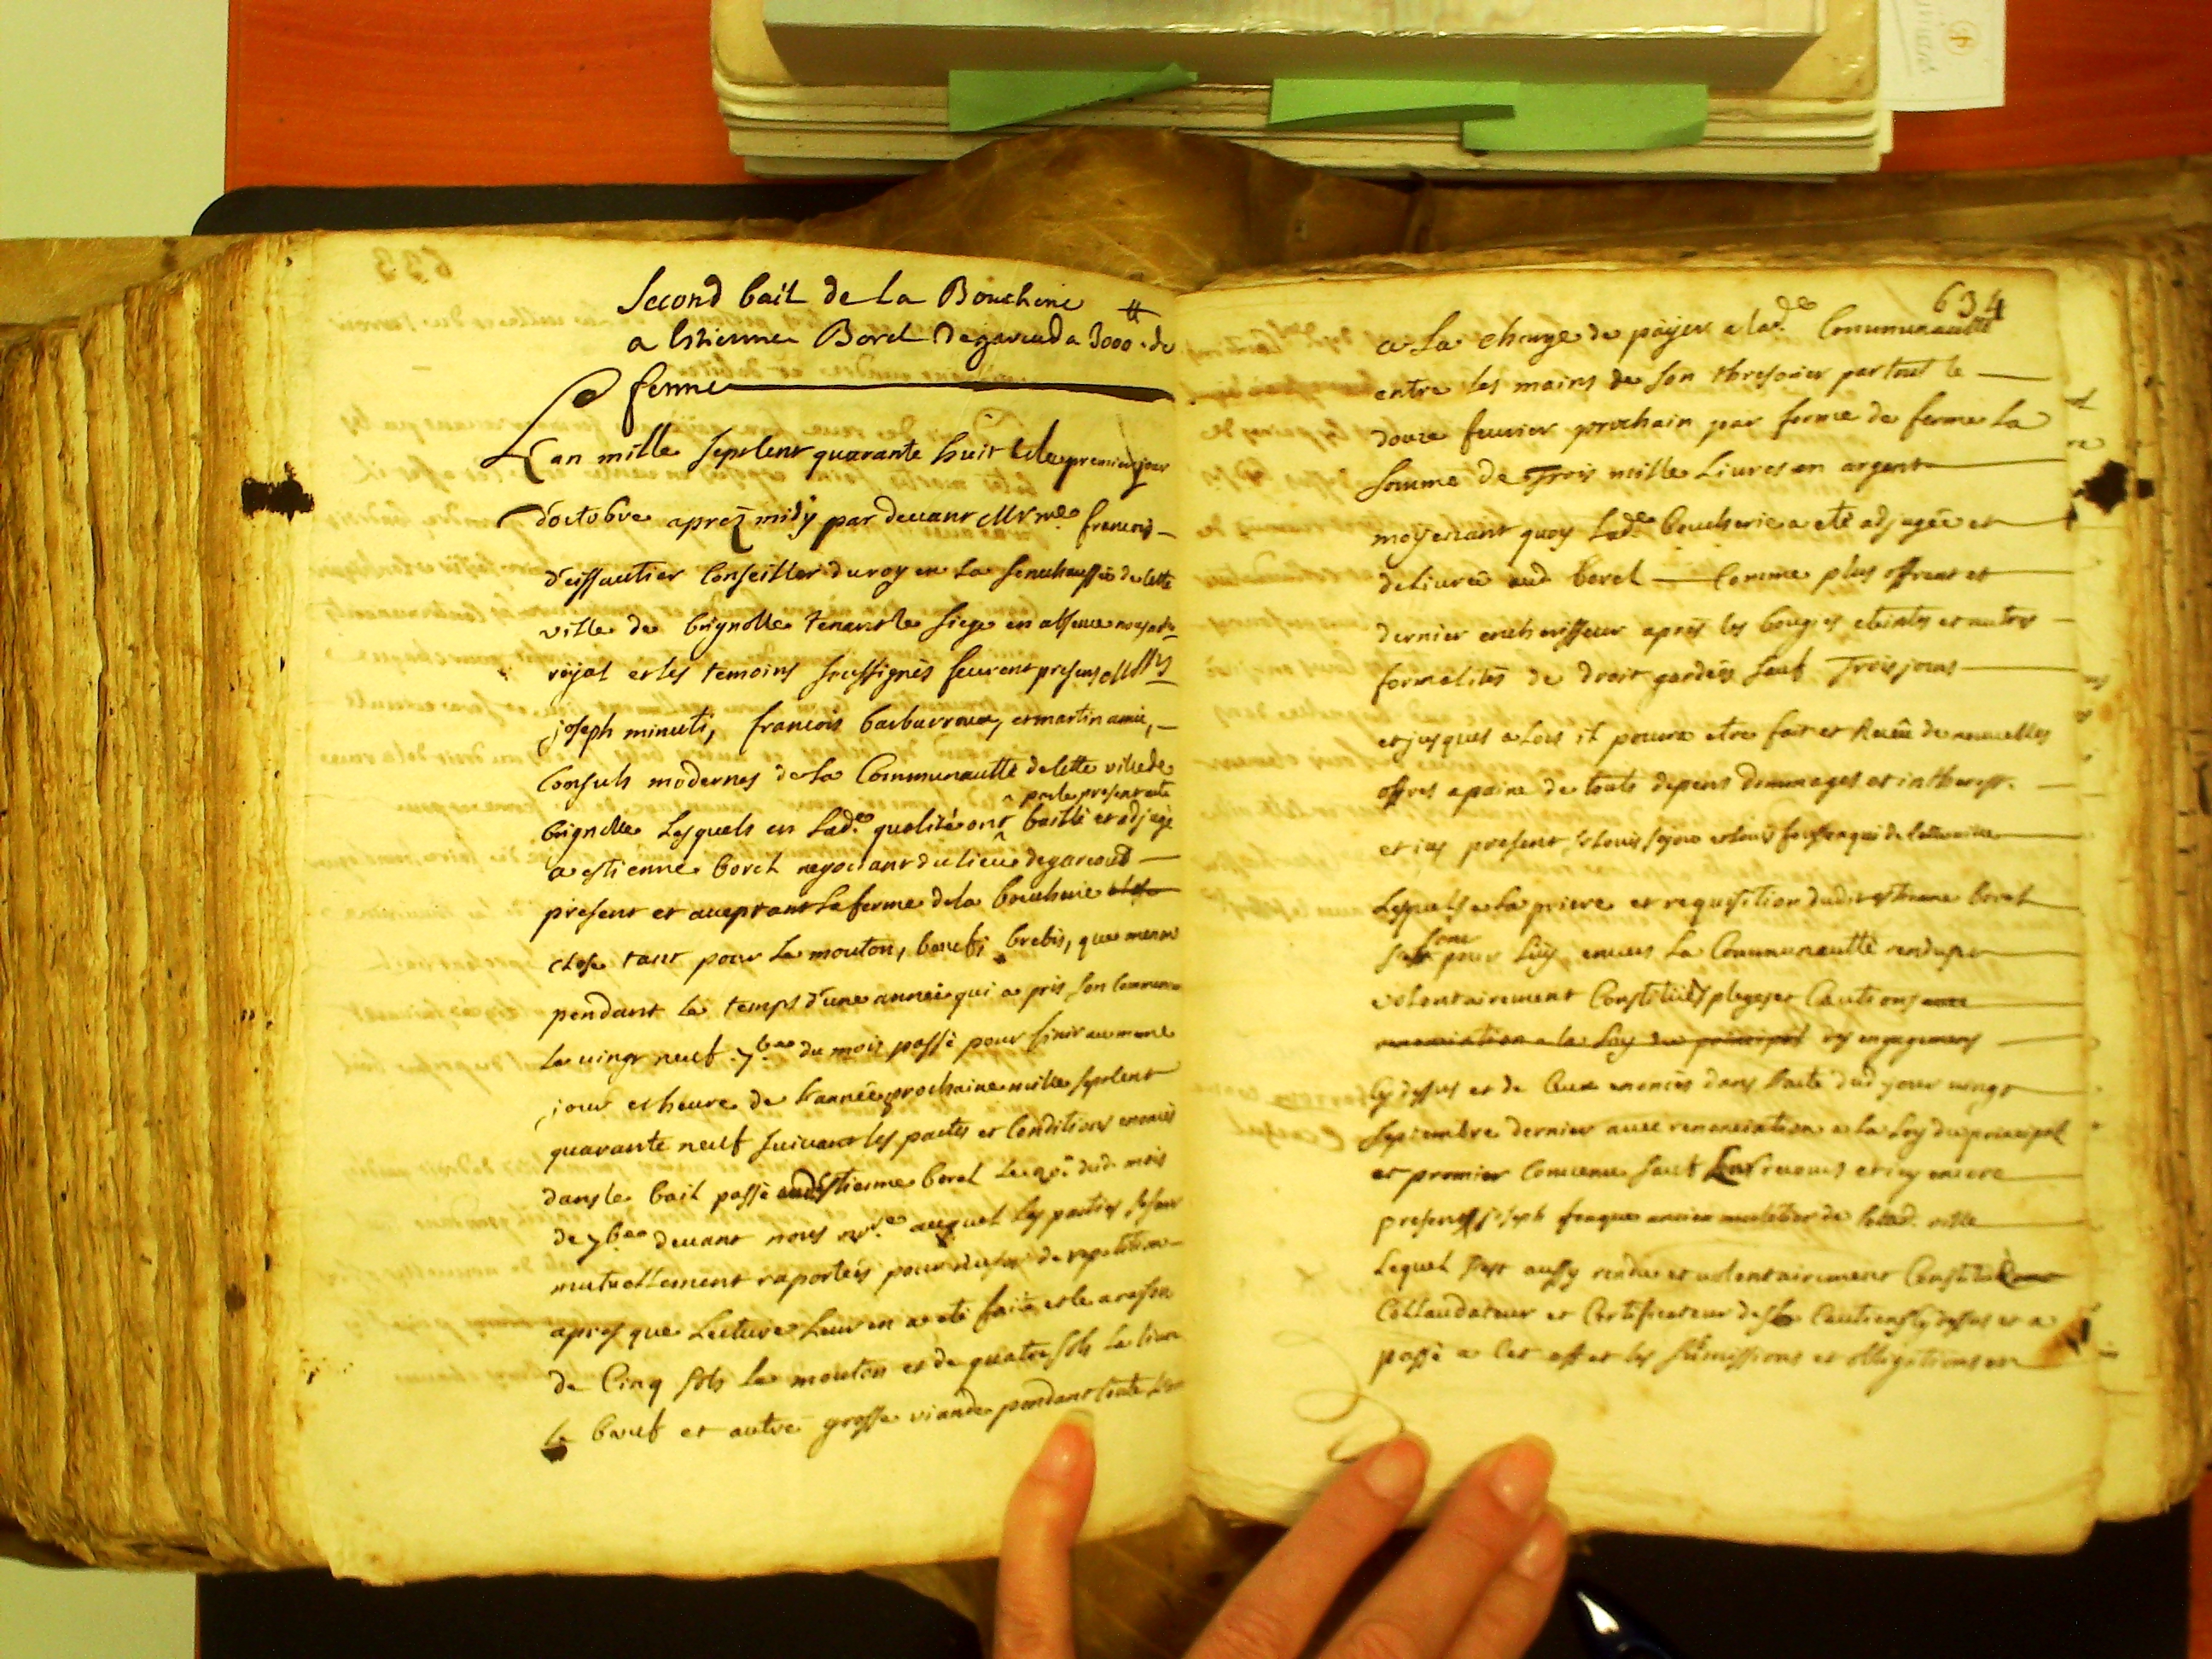 Second bail de la Boucherie
a Estienne Borel de garcud a 3000 ₶ de
ferme
L'an mille sept cent quarante huit et le premier jour
d'octobre aprez midy par devant Mr me francois
d'eissautier Conseiller du roy en la senechaussée de cette
ville de brignolle tenant le siege en absence notaire
royal et les temoins soussignés feurent presens Mrs
joseph minuti, francois barbarroux, et martin amic,
Consuls modernes de la Communautté de cette ville de
par le present acte
brignolle Lesquels en lade qualité ont baillé et adjugé
a estienne borel negociant du lieu de garcoud
present et acceptant la ferme de la boucherie
close tant pour le mouton, boeuf, brebis, que menon
pendant le temps d'une année qui a pris son commence
le vingt neuf 7bre du mois passé pour finir au meme
jour et heure de l'année prochaine mille sept cent
quarante neuf suivant les pactes et Conditions enoncés
dans le bail passé aud estienne borel le 20e dud. mois
de 7bre devant nous nre auquel les parties se sont
mutuellement raportées pour n'user de repetition
apres que Lecture leur en a eté faite et le a raison
de Cinq sols le mouton et de quatre sols la livre
le boeuf et autre grosse viande pendant toute
634
a la charge de payer a lade Communautté
entre les mains de son thresorier par tout le
douze fevrier prochain par forme de ferme la
somme de Trois mille Livres en argent
moyenant quoy lade boucherie a eté adjugée et
delivrée aud borel Comme plus offrant et
dernier encherisseur aprés les bougies eteintes et autres
formalités de droit gardées sauf Trois jours
et jusques a Lors il pourra etre fait et Receu de nouvelles
offres a paine de touts depens dommages et interest.
et icy present Sr Louis et Louis de cette ville
Lesquels a la priere et requisition dudit estienne borel
sont
pour Luy envers la Communautté rendus
volontairement Constitués pleges et Cautions
renonciation a la Loy du principal des engagements
cy dessus et de Ceux enoncés dans l'acte dud jour vingt
Septembre dernier avec renonciation a la Loy du principal
et premier Convenu sauf Leur recours et icy encore
present joseph ancien de cette d. ville
Lequel s'est aussy rendu et volontairement Constitué
Collaudateur et Certificateur des Cautions cy dessus et a
passé a Cet effet les sumissions et obligations en